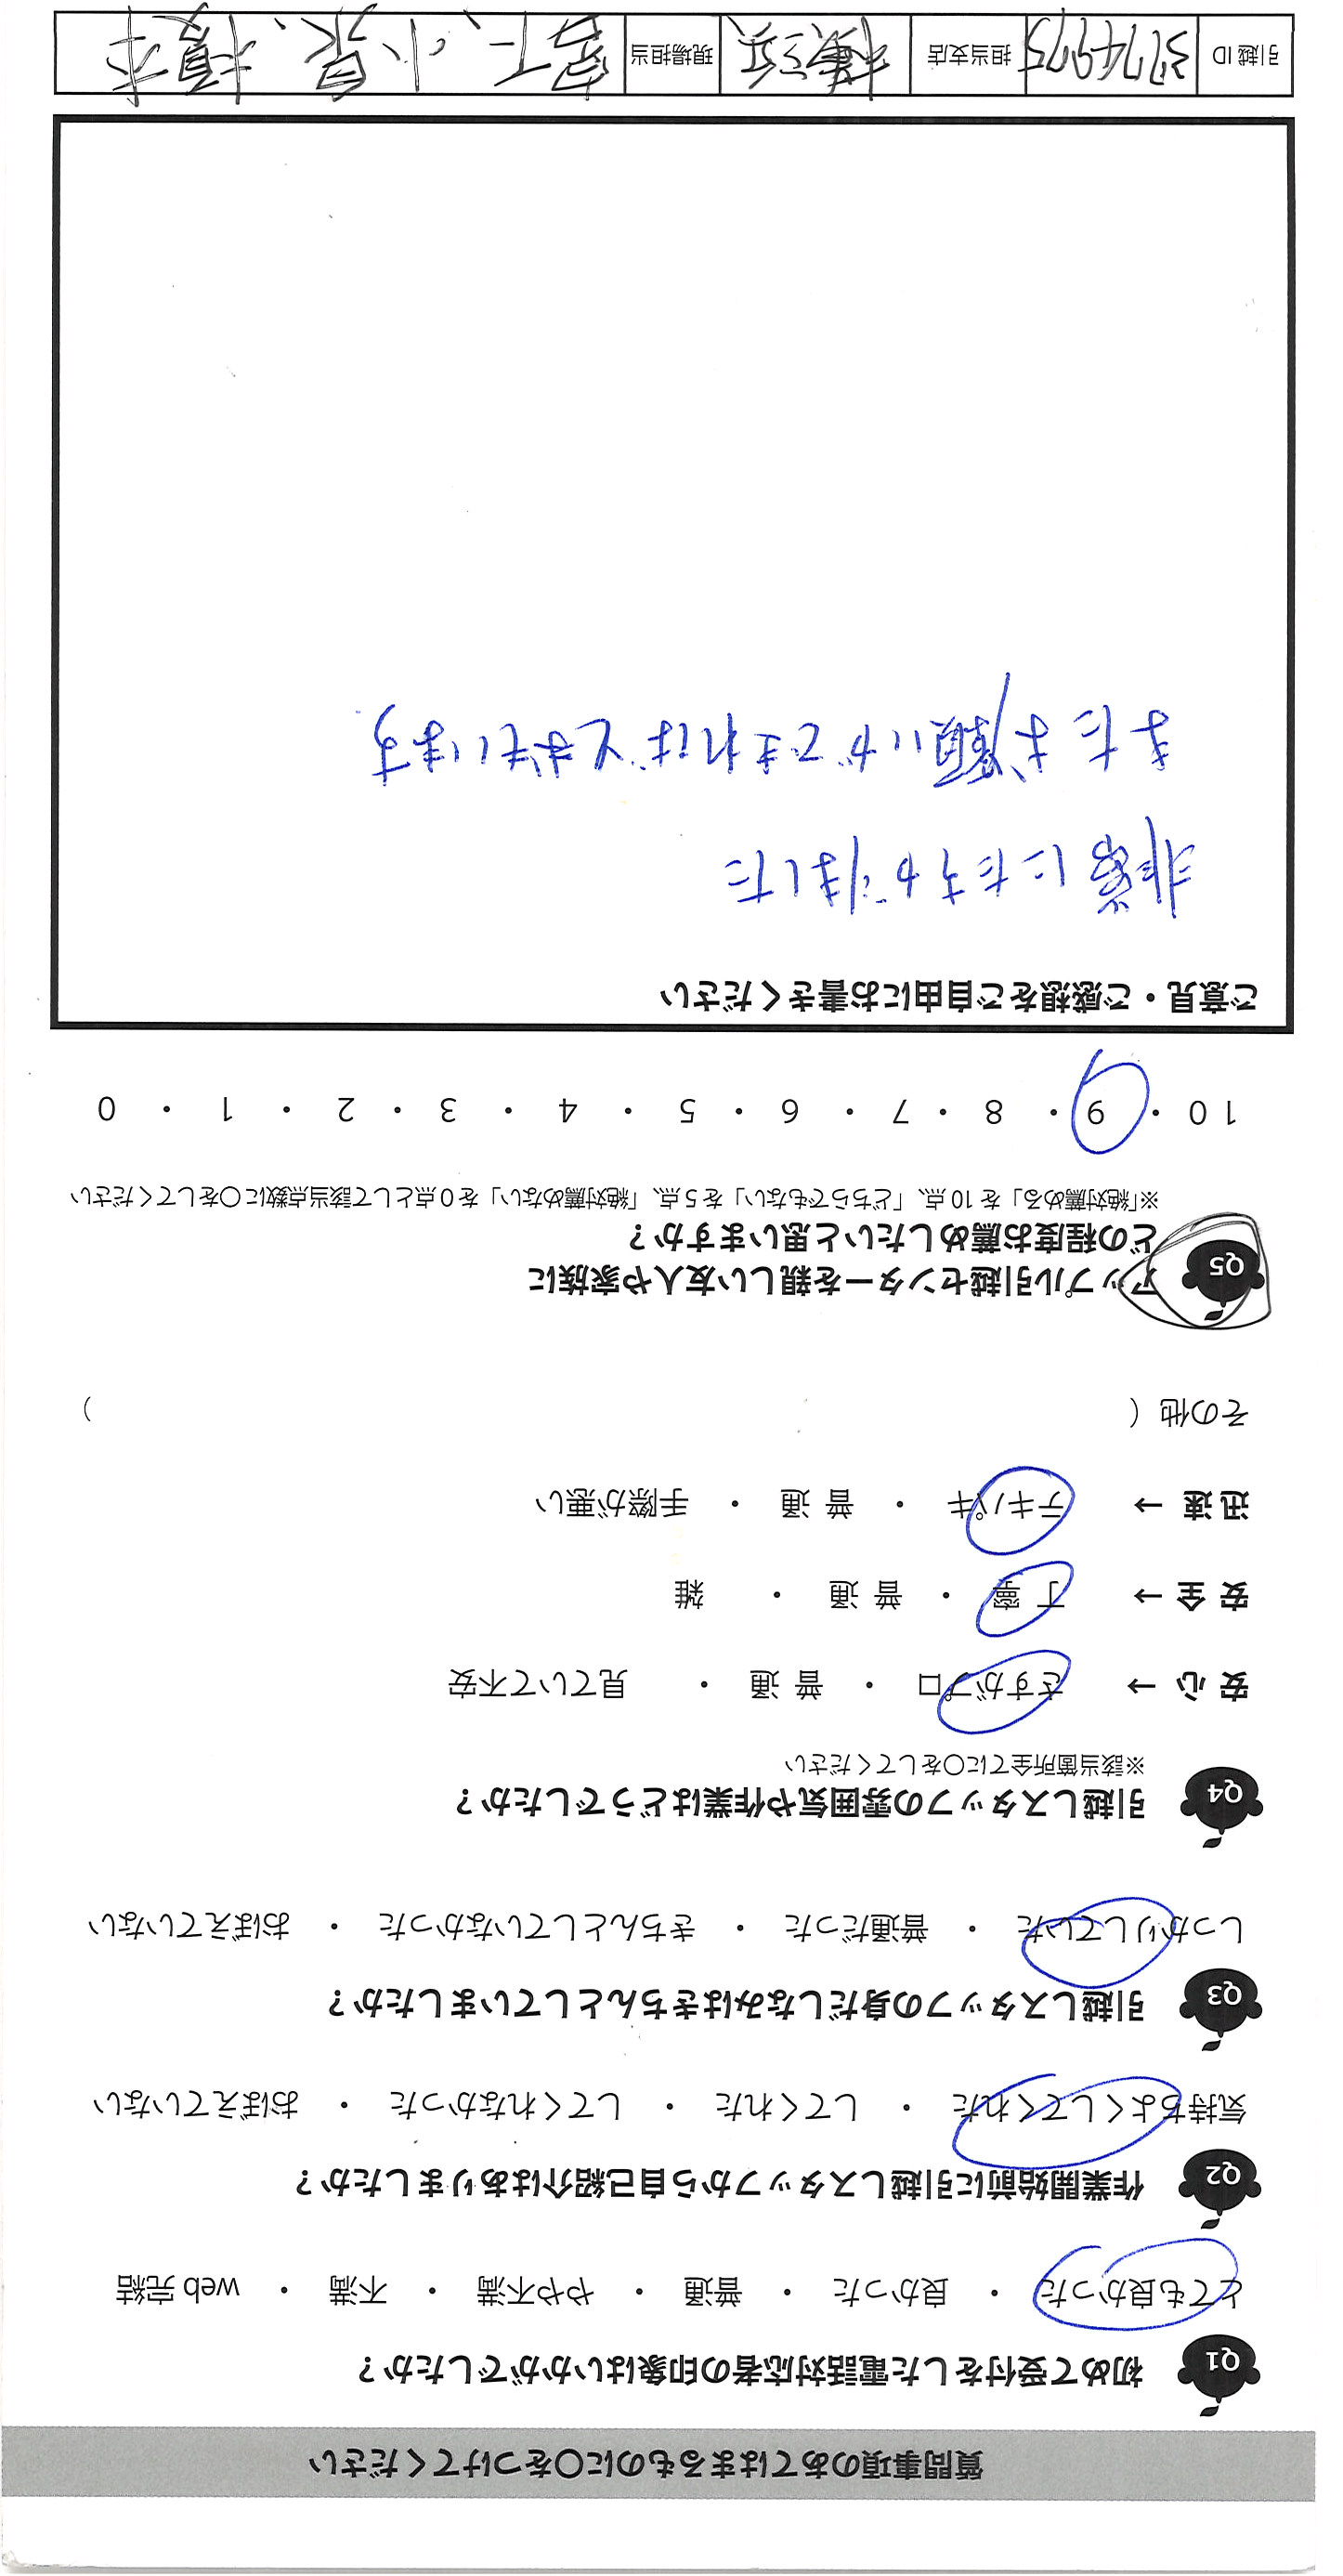 質問事項のあてはまるものに○をつけてください
Q1 初めて受付をした電話対応者の印象はいかがでしたか？
とても良かった ・ 良かった ・ 普通 ・ やや不満 ・ 不満 ・ web 完結
Q2 作業開始前に引越しスタッフから自己紹介はありましたか？
気持ちよくしてくれた ・ してくれた ・ してくれなかった ・ おぼえていない
Q3 引越しスタッフの身だしなみはきちんとしていましたか？
しっかりしていた ・ 普通だった ・ きちんとしていなかった ・ おぼえていない
Q4 引越しスタッフの雰囲気や作業はどうでしたか？
※該当箇所全てに○をしてください
安 心 → さすがプロ ・ 普 通 ・ 見ていて不安
安 全 → 丁 寧 ・ 普 通 ・ 雑
迅 速 → テキパキ ・ 普 通 ・ 手際が悪い
その他（ ）
Q5 アップル引越センターを親しい友人や家族に
どの程度お薦めしたいと思いますか？
※「絶対薦める」を 10 点、「どちらでもない」を 5 点、「絶対薦めない」を 0 点として該当点数に○をしてください
10 ・ 9 ・ 8 ・ 7 ・ 6 ・ 5 ・ 4 ・ 3 ・ 2 ・ 1 ・ 0
ご意見・ご感想をご自由にお書きください
非常にたすかりました
またお願いができればとおもいます
引越 ID 3774975 担当支店 横浜 現場担当 小泉、